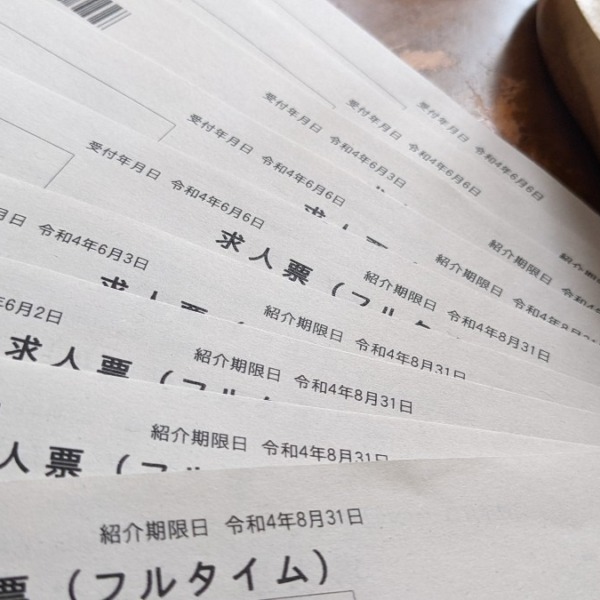 受付年月日 令和4年6月6日
受付年月日 令和4年6月6日
受付年月日 令和4年6月3日
受付年月日 令和4年6月6日
受付年月日 令和4年6月6日
月日 令和4年6月3日
年6月2日
紹介期限日
紹介期限日 令和4年8月
紹介期限日 令和4年8月31日
求人票（フルタ
紹介期限日 令和4年8月31日
求人票（
紹介期限日 令和4年8月31日
求人票（フル
紹介期限日 令和4年8月31日
人票（フ
紹介期限日 令和4年8月31日
票（フルタイム）